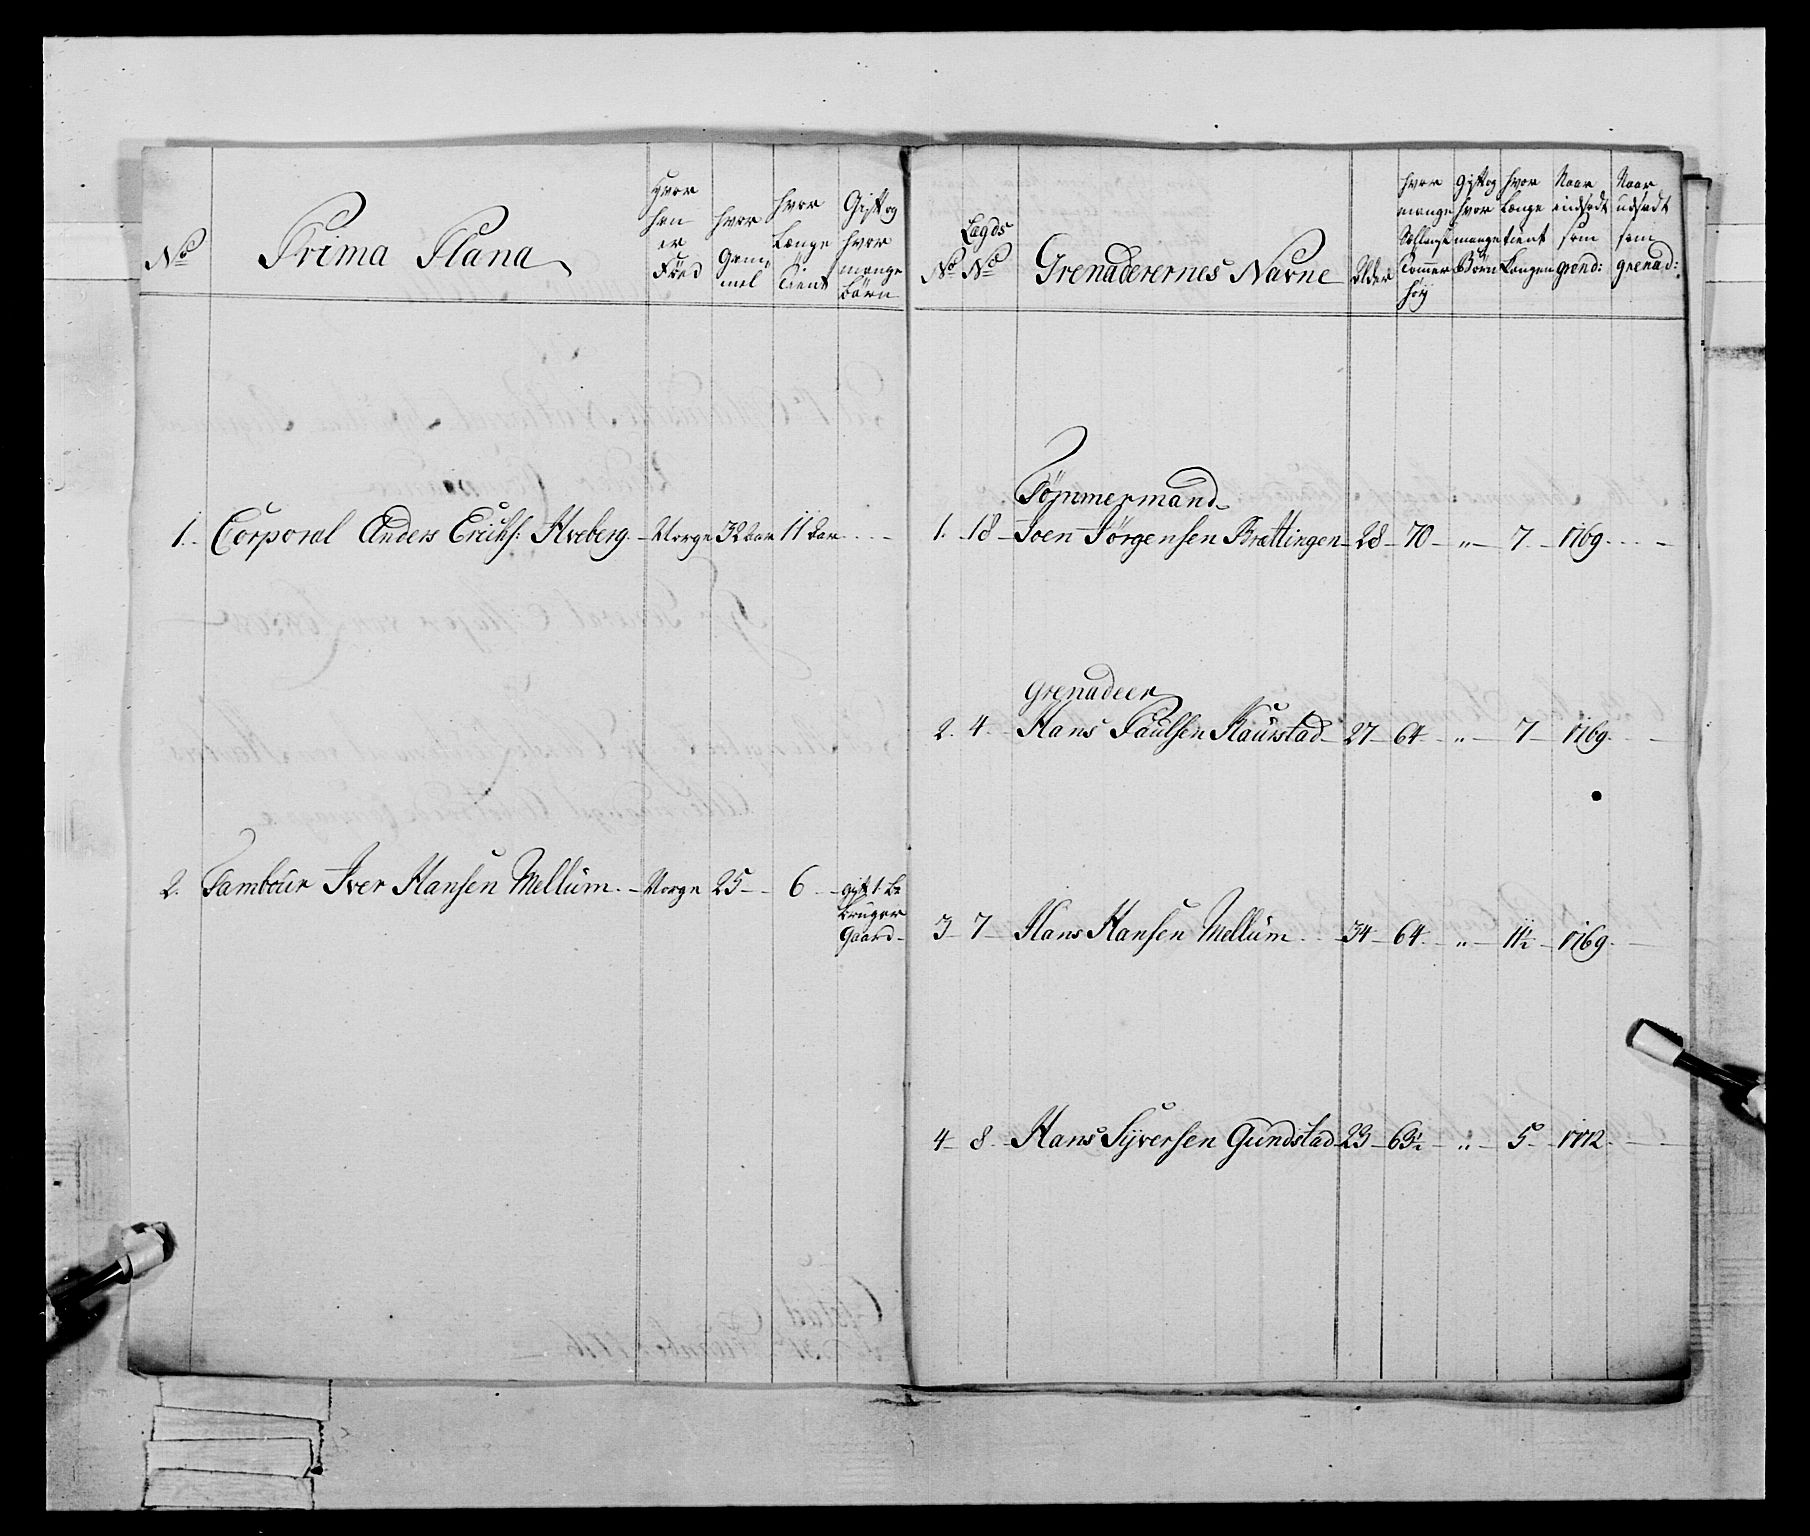 No
Prima Plana
Hvor
han
er
Föed
hvor
Gam,
mel
hvor
Længe
tient
Gift og
hvor
mange
börn
1. Corporal Anders Erichs: Hveberg. Norge 32 aar 11 aar
2. Tambour Iver Hansen Mellum. Norge 25 6 gift 1 B
bruger
gaard
No
Lægds
No
Grenaderernes Navne
Alder
hvor
mange
Sællansk
Tomer
höy
Gift og
hvor
mange
Börn
hvor
Længe
tient
Kongen
Naar
indsadt
som
grend:
Naar
udsadt
som
grenad:
Tømmermand
1. 18 Joen Jørgensen Brattingen 28 70 " 7 1769
Grenadeer
2. 4 Hans Paulsen Haurstad 27 64 " 7 1769
3 7 Hans Hansen Mellum 34 64 " 11½ 1769.
4 8. Hans Syversen Gundstad 23 63½ " 5 1772.